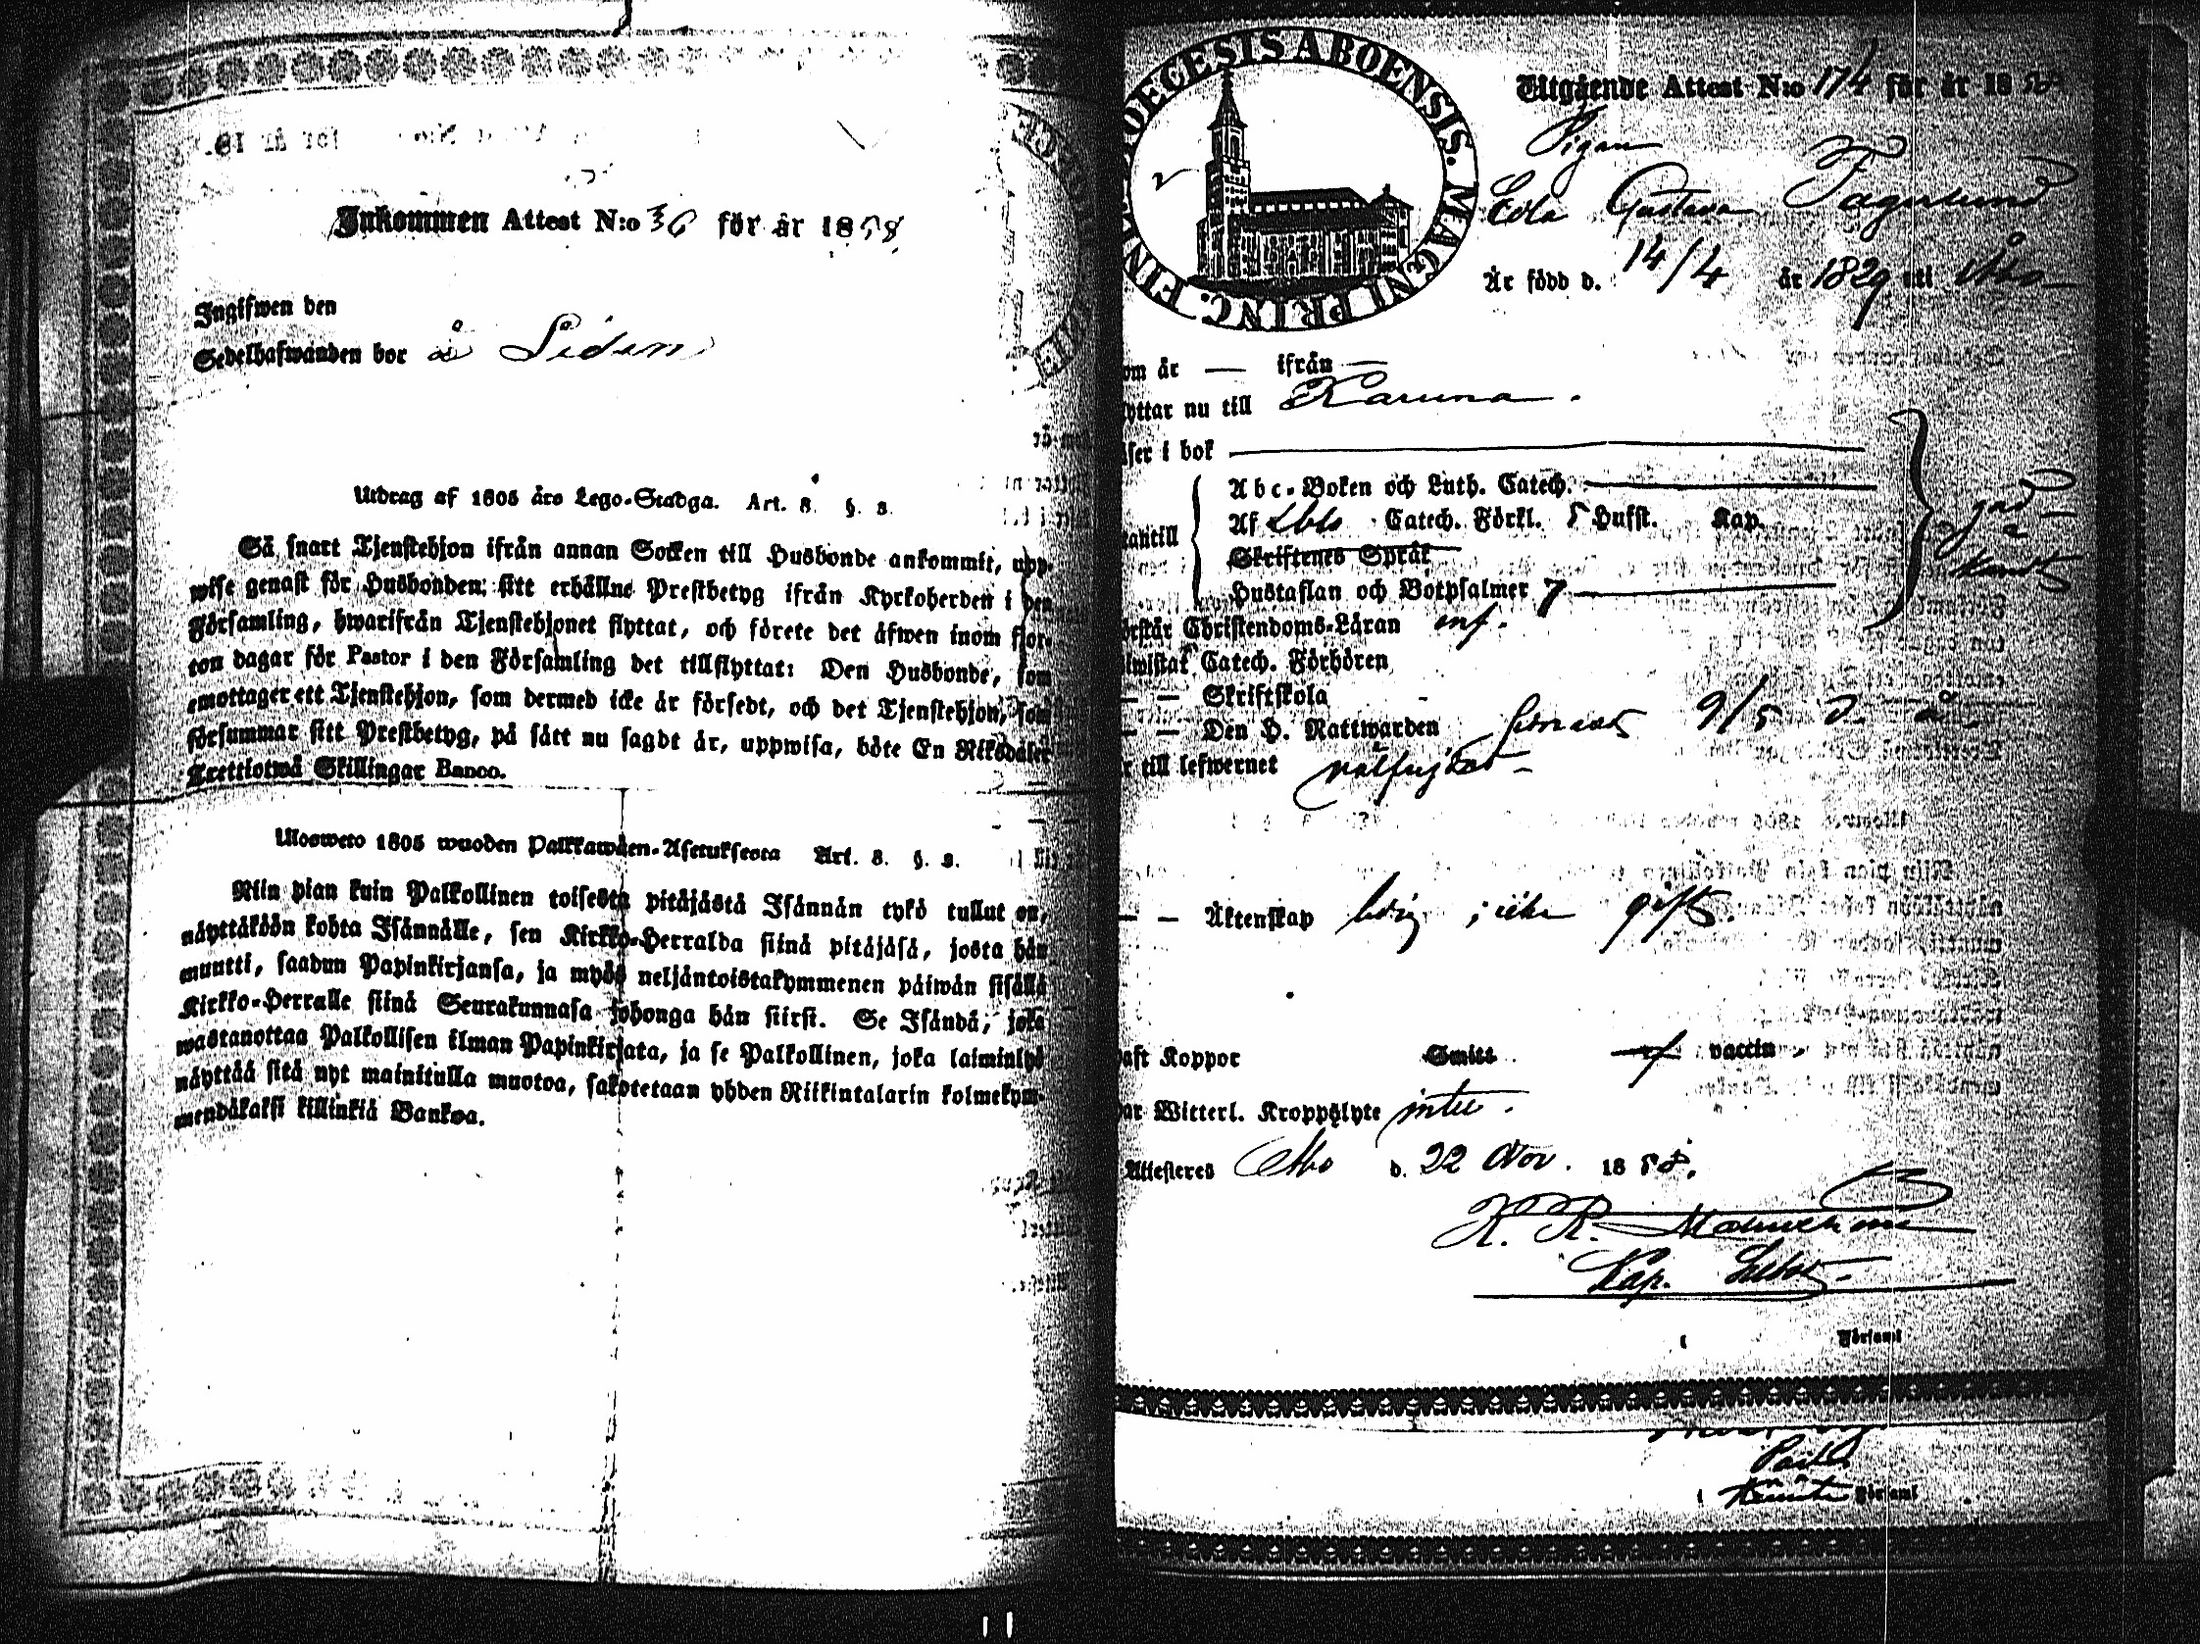 Inkommen Attest N:o 36 för år 1858
Ingifwen den
Sedelhafwanden bor å Siden
Utdrag af 1805 års Lego-Stadga. Art. 8. §. 8.
Så snart Tjenstehjon ifrån annan Socken till Husbonde ankommit, upp-
wise genast för Husbonden sitt erhållne Prestbetyg ifrån Kyrkoherden i den
Församling, hwarifrån Tjenstehjonet flyttat, och förete det äfwen inom fjor-
ton dagar för Pastor i den Församling det tillflyttat: Den Husbonde, som
emottager ett Tjenstehjon, som dermed icke är försedt, och det Tjenstehjon, som
försummar sitt Prestbetyg, på sätt nu sagdt är, uppwisa, böte En Riksdaler
Trettiotwå Skillingar Banco.
Ulosweto 1805 wuoden Palkkawäen-Asetuksesta Art. 8. §. 8.
Niin pian kuin Palkollinen toisesta pitäjästä Isännän tykö tullut on,
näyttäköön kohta Isännälle, sen Kirkko-Herralda siinä pitäjäsä, josta hän
muutti, saadun Papinkirjansa, ja myös neljäntoistakymmenen päiwän sisällä
Kirkko-Herralle siinä Seurakunnasa johonga hän siirsi. Se Isändä, joka
wastanottaa Palkollisen ilman Papinkirjata, ja se Palkollinen, joka laiminlyö
näyttää sitä nyt mainitulla muotoa, sakotetaan yhden Riikintalarin kolmekym-
mendäkaksi killinkiä Bankoa.
OECESIS ABOENSIS. MAGNI PRINC. FINL
Utgående Attest N:o 174 för år 1858
Pigan
Eda Gustava Fagerlund
Är född d. 14/4 år 1829 uti Åbo
om år — ifrån —
yttar nu till Karuna.
äser i bok
Abc-Boken och Luth. Catech.
Af Catech. Förkl. 5 Hufst. Kap.
antill
Skriftenes Språk
Hustaflan och Botpsalmer 7
örstår Christendoms-Läran
iwistat Catech. Förhören
— — Skriftskola
— — Den H. Nattwarden senast 9/5 d. å.
r till lefwernet välfrejdad
— — Äktenskap ledig, icke gift.
aft Koppor Smitt vaccin
ar Witterl. Kroppslyte intet.
Attesteres Åbo d. 22 Nov. 1858.
Kap.
i Församl
i Församl